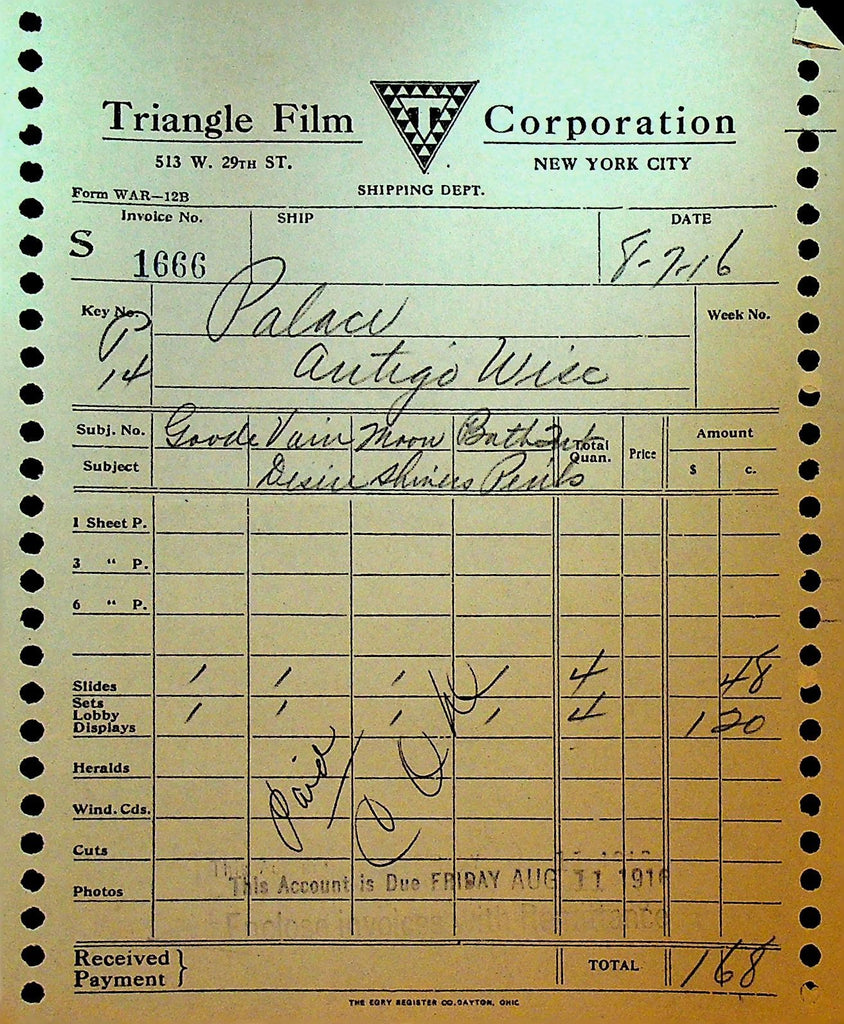 Triangle Film Corporation
513 W. 29TH ST. NEW YORK CITY
SHIPPING DEPT.
Form WAR—12B
Invoice No. SHIP DATE
S 1666 8-7-16
Key No. Palace Week No.
P
14 Antigo Wisc
Subj. No. Goode Vain Moon Bath Total Quan. Price Amount
Subject Desire Shiners Perils $ c.
1 Sheet P.
3 " P.
6 " P.
Slides 1 1 1 1 4 48
Sets Lobby Displays 1 1 1 1 4 1 20
Heralds
Paid
Wind. Cds.
Cuts
This Account is Due FRIDAY AUG 11 1916
Photos
Enclose Invoices with Remittance
Received Payment } TOTAL 1 68
THE EGRY REGISTER CO. DAYTON, OHIO